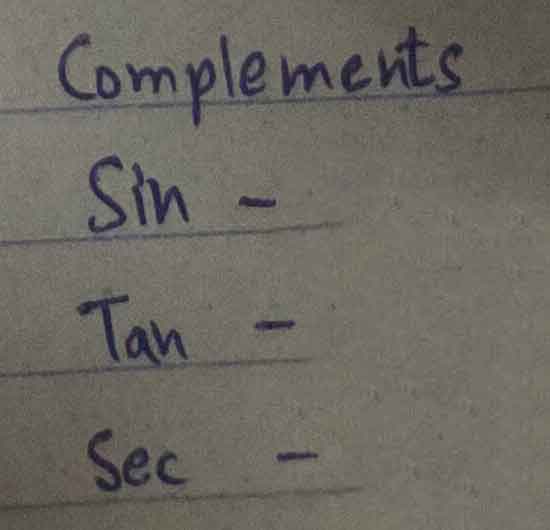 Complements
Sin -
Tan -
Sec -